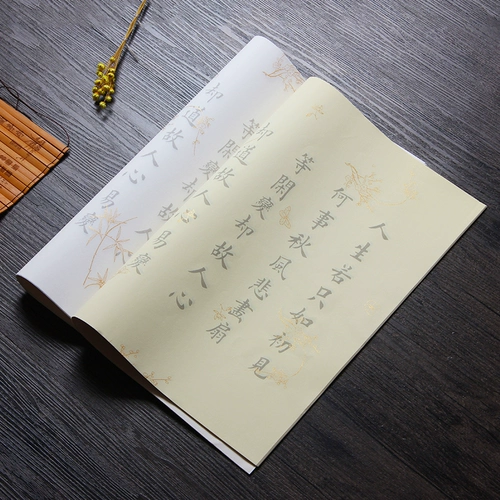 人生若只如初見
何事秋風悲畫扇
等閑變却故人心
却道故人心易變
等閑變却故人
却道故人心易變